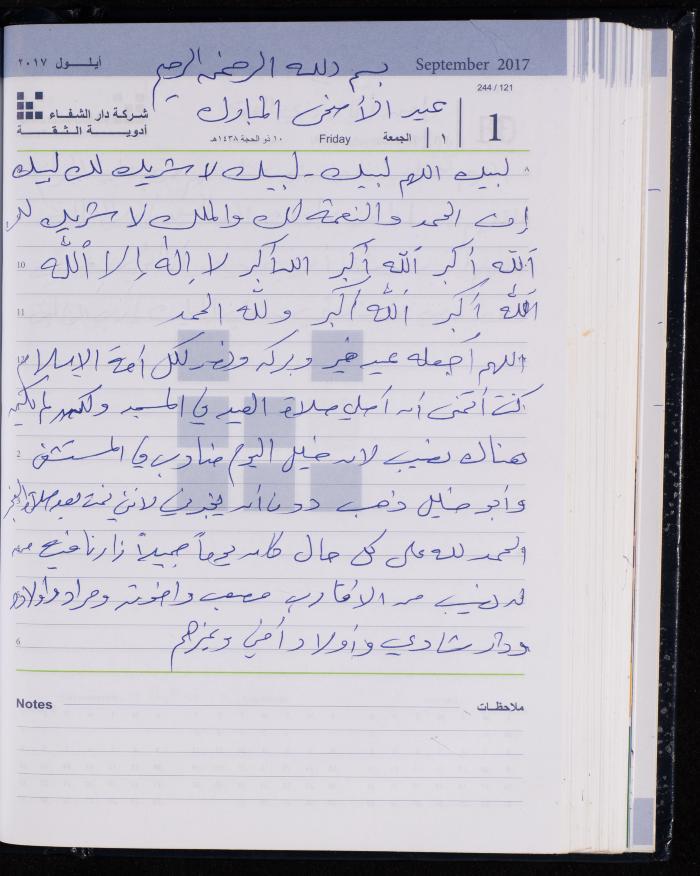 أيلول ٢٠١٧
September 2017
بسم الله الرحمن الرحيم
244 / 121
شركة دار الشفاء
أدوية الثقة
عيد الأضحى المبارك
1
١
الجمعة
Friday
١٠ ذو الحجة ١٤٣٨هـ
لبيك اللهم لبيك - لبيك لا شريك لك لبيك
إن الحمد والنعمة لك والملك لا شريك لك
10 الله أكبر الله أكبر الله أكبر لا إله إلا الله
11 الله أكبر الله أكبر ولله الحمد
اللهم أجعله عيد خير وبركه ونصر لكل أمة الإسلام
كنت أتمنى أن أصلي صلاة العيد في المسجد ولكن لم يكن
2 هناك نصيب لان خليل اليوم مناوب في المستشفى
وأبو خليل ذهب دون أن يخبرني لأنني نمت بعد صلاة الفجر
والحمد لله على كل حال كان يوماً جميلاً زارنا فيه
من الأقارب مصعب واخوته ومراد وأولاده
6 ودار شادي وأولاد أخي وغيرهم
Notes
ملاحظات